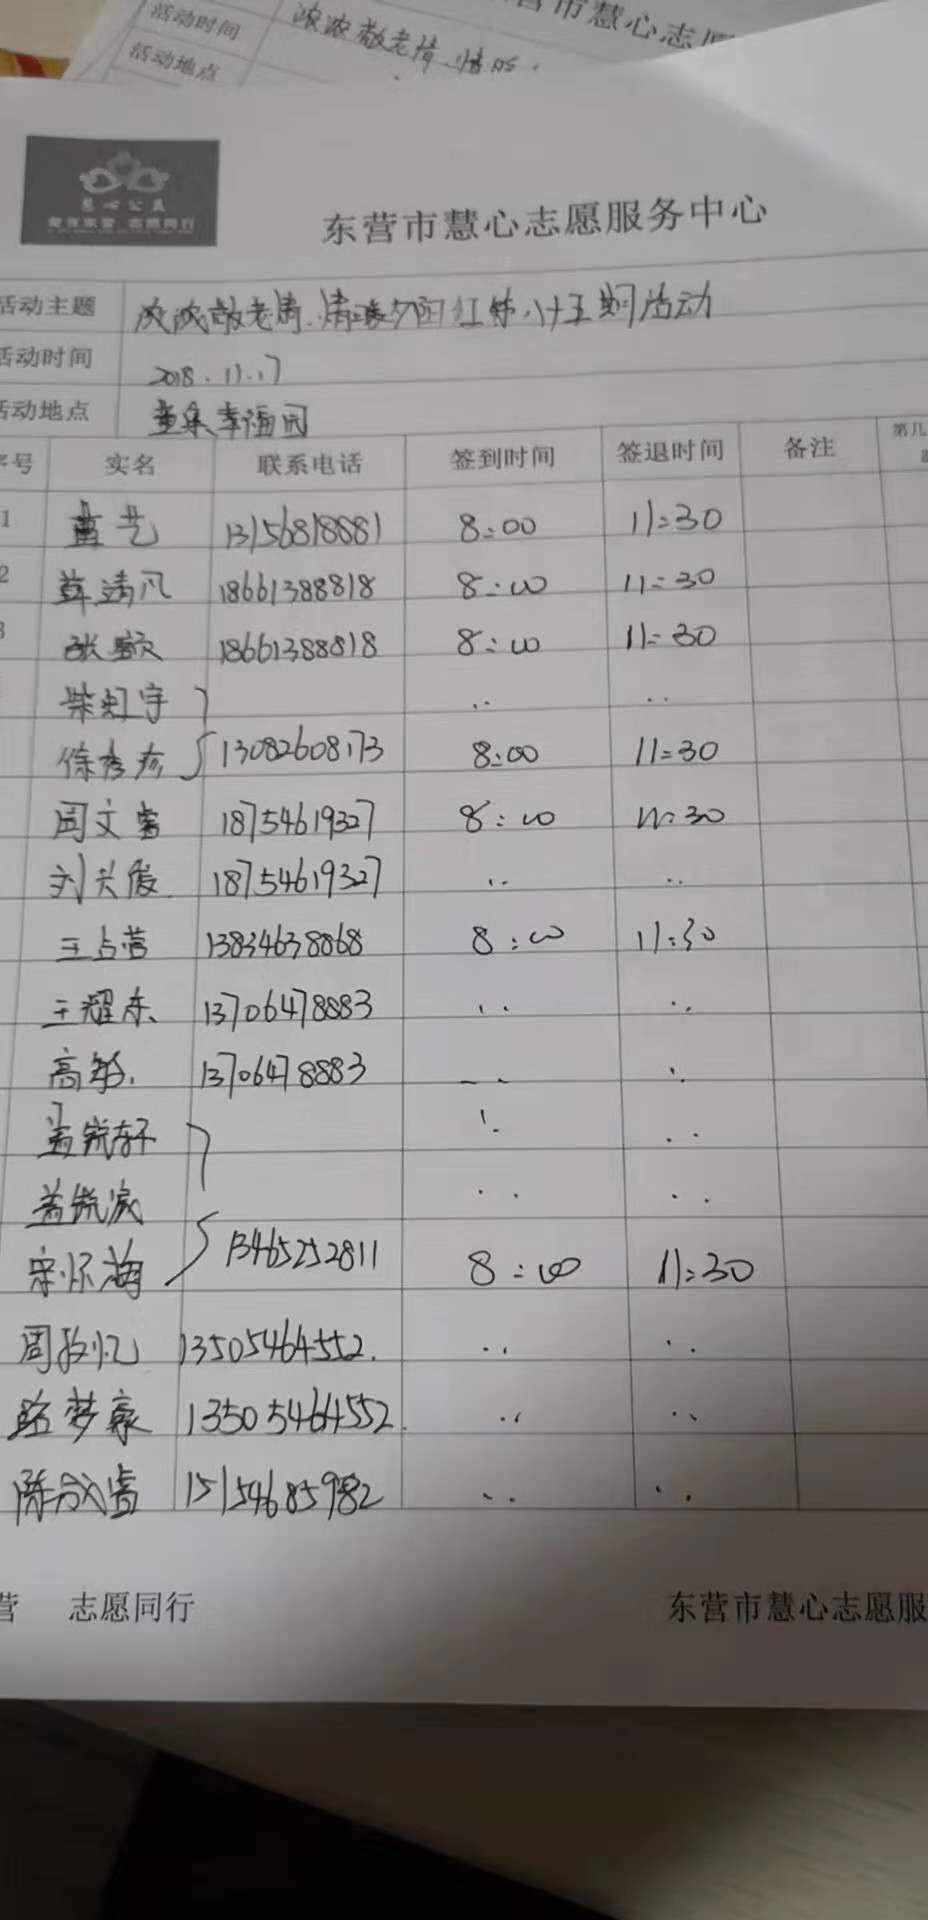 活动时间 浓浓敬老情.情
活动地点
营市慧心志愿
慧心公益
爱在东营 志愿同行
东营市慧心志愿服务中心
活动主题 浓浓敬老情.情暖夕阳红第八十五期活动
活动时间 2018.11.17
活动地点 董集幸福园
序号 实名 联系电话 签到时间 签退时间 备注 第几
1 艺 13156818881 8:00 11:30
2 薛清凡 18661388818 8:00 11:30
3 张 18661388818 8:00 11:30
柴虹宇 .. ..
徐秀珍 13082608173 8:00 11:30
周文 18754619327 8:00 11:30
刘兴俊 18754619327 .. ..
王占营 13834638868 8:00 11:30
王耀东 13706478883 .. ..
高 13706478883 .. ..
盖锐轩 .. ..
盖锐 .. ..
宋怀海 13465252811 8:00 11:30
周忆 13505464552. .. ..
路梦豪 13505464552. .. ..
陈 15154685982 .. ..
营 志愿同行 东营市慧心志愿服